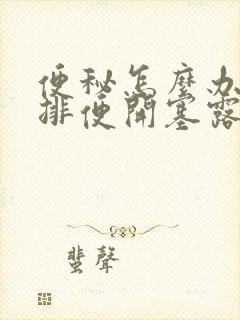 便秘怎麼办
排便開塞露
蜚聲